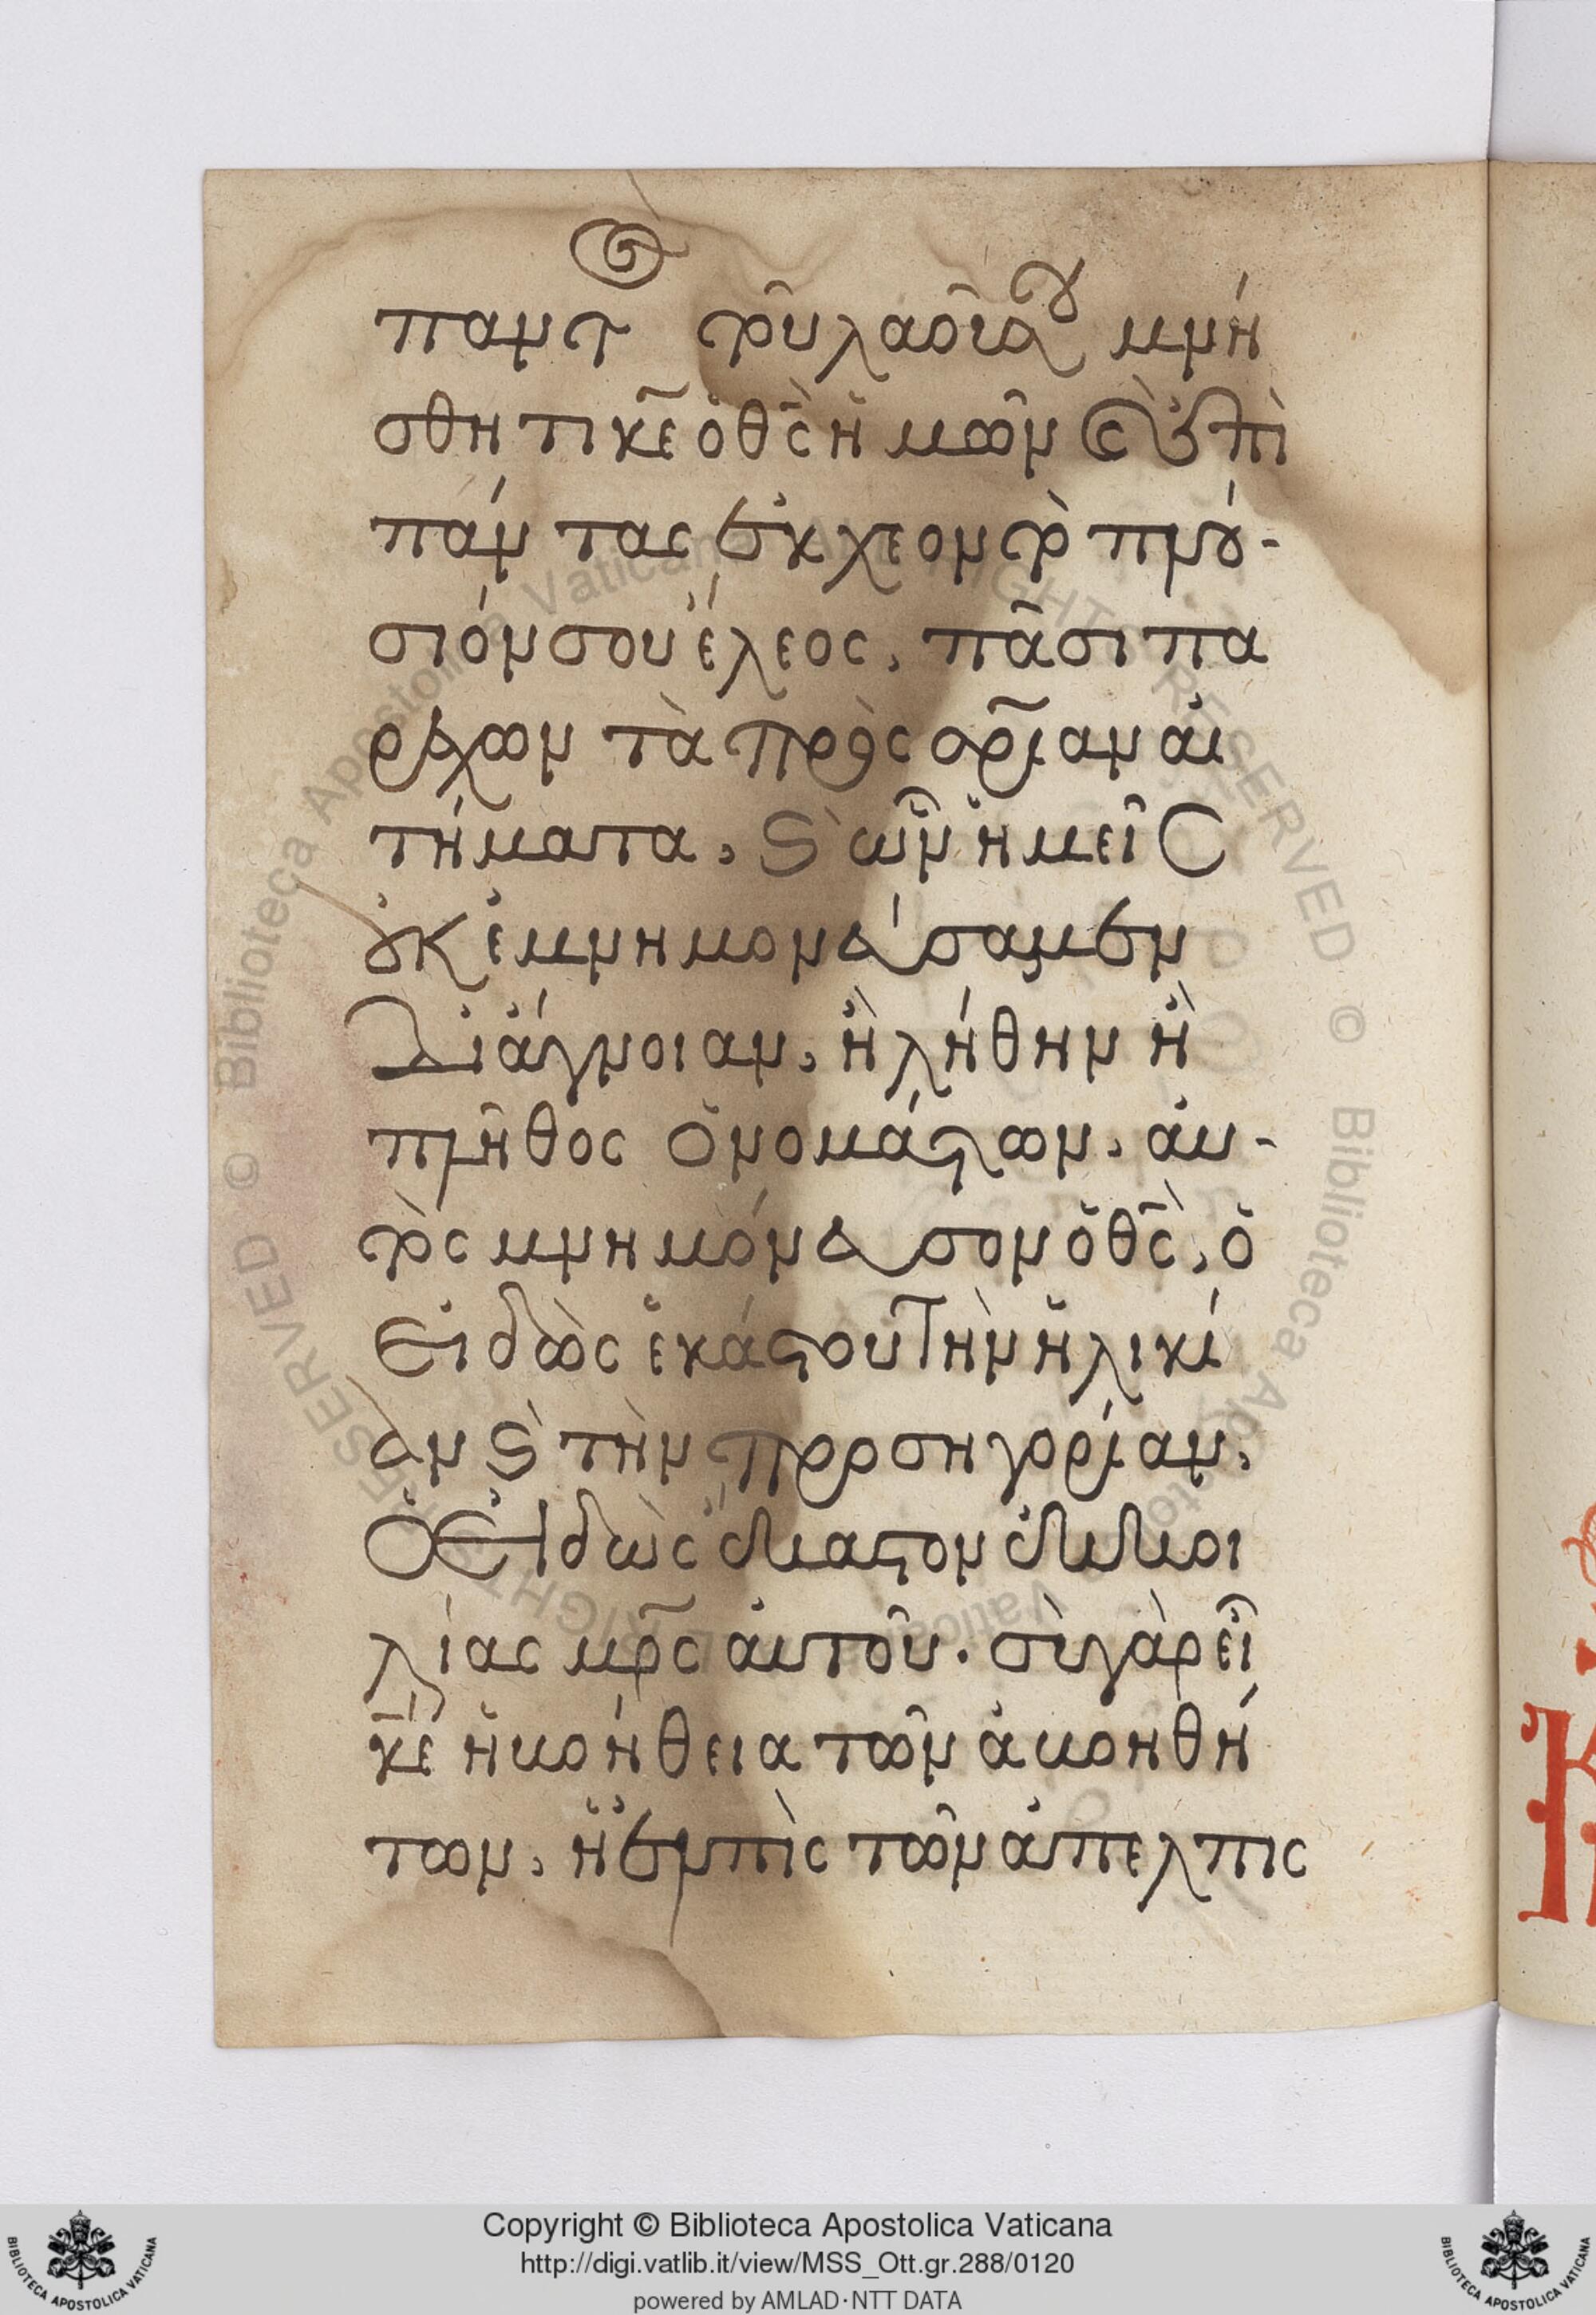 παντ(ὸς) τοῦ λαοῦ σου μνή
σθητι κε̄ ὁ θς̄ ἡμῶν (καὶ) ἐπὶ
πάντας ἔκχεον τὸ πλού-
σιόν σου ἔλεος, πᾶσι πα
ρέχων τὰ πρὸς σρ̄ίαν αἰ
τήματα, (καὶ) ὧν ἡμεῖς
οὐκ ἐμνημονεύσαμεν
δι' ἄγνοιαν, ἢ λήθην ἢ
πλῆθος ὀνομάτων, αὐ-
τὸς μνημόνευσον ὁ θς̄, ὁ
εἰδὼς ἑκάστου τὴν ἡλικί
αν (καὶ) τὴν προσηγορίαν,
ὁ εἰδὼς ἕκαστον ἐκ κοι
λίας μρ̄ς αὐτοῦ. σὺ γὰρ εἶ
κε̄ ἡ βοήθεια τῶν ἀβοηθή
των, ἡ ἐλπὶς τῶν ἀπελπις
Copyright © Biblioteca Apostolica Vaticana
http://digi.vatlib.it/view/MSS_Ott.gr.288/0120
powered by AMLAD·NTT DATA